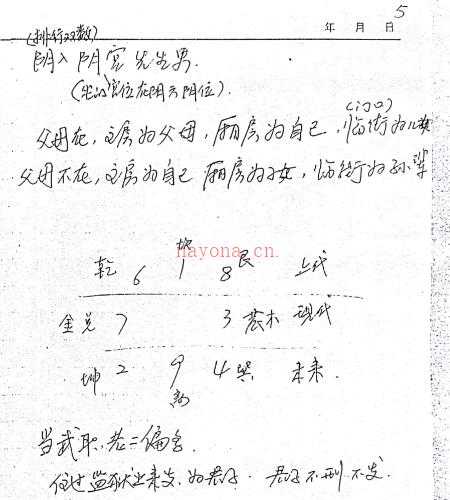 年 月 日 5
(排行双数)
阴入阴宫先生男.
(坐的宫位在阴六阴位).
(门口)
父母在,主房为父母,厢房为自己,临街为儿女
父母不在,主房为自己 厢房为子女,临街为孙辈
乾 6 坎 1 8 艮 上代
金兑 7 3 震木 现代
坤 2 9 离 4 巽 未来.
hayona.cn
当武职,老二偏名.
住过监狱出来发,为君子.君子不刑不发.